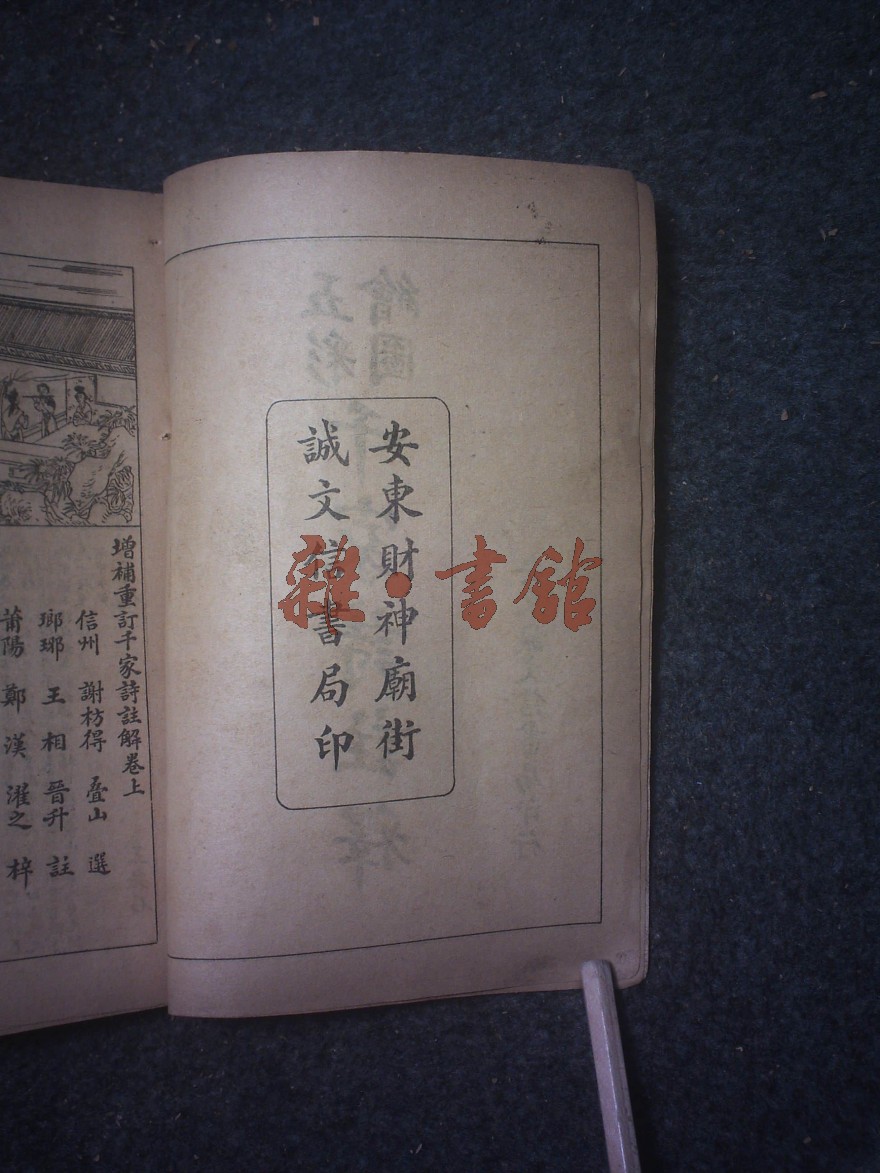 安東財神廟街
誠文信書局印
雜·書館
增補重訂千家詩註解卷上
信州 謝枋得 叠山 選
瑯琊 王相 晉升 註
莆陽 鄭漢 濯之 梓